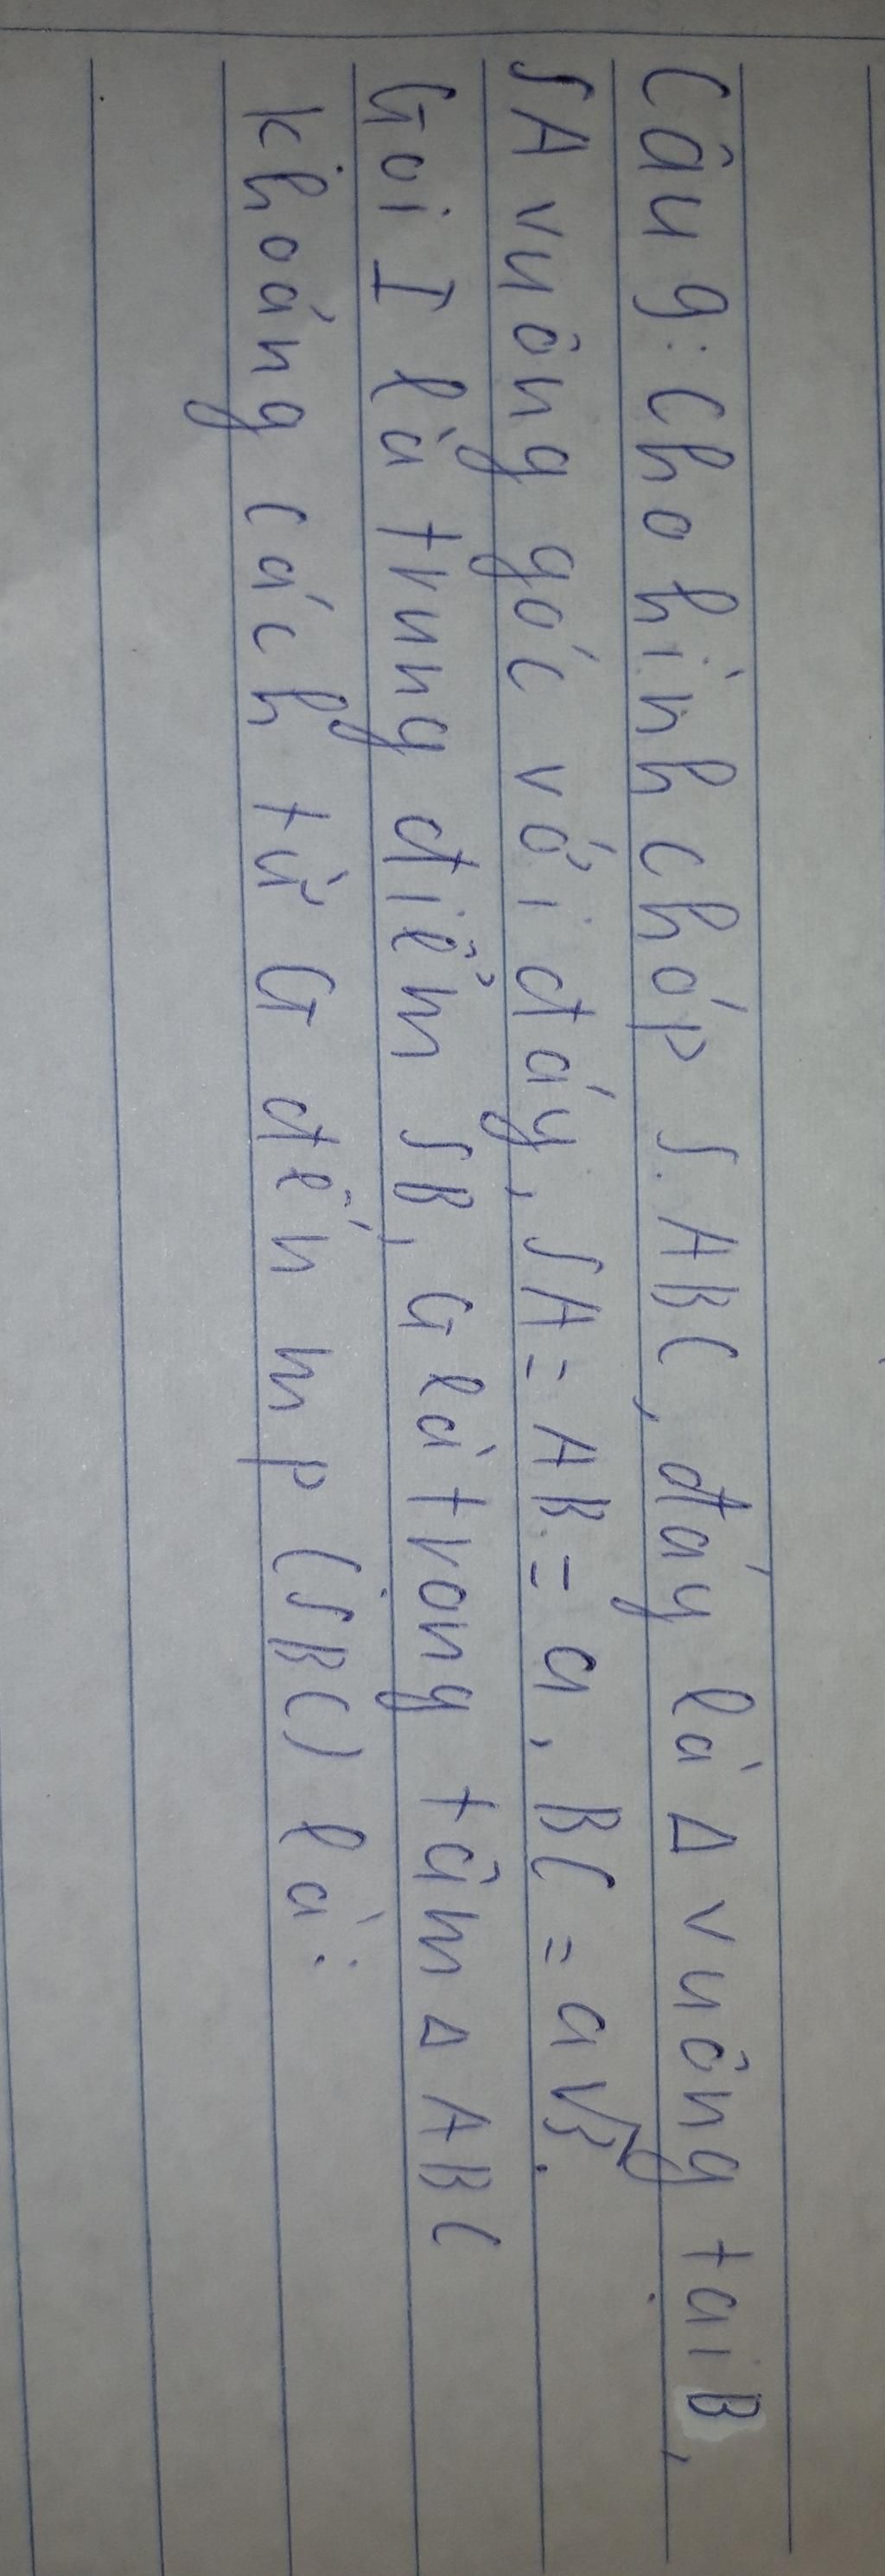 Câu 9: Cho hình chóp S.ABC, đáy là Δ vuông tại B,
SA vuông góc với đáy, SA = AB = a, BC = a√3.
Gọi I là trung điểm SB, G là trọng tâm Δ ABC
khoảng cách từ G đến mp (SBC) là: